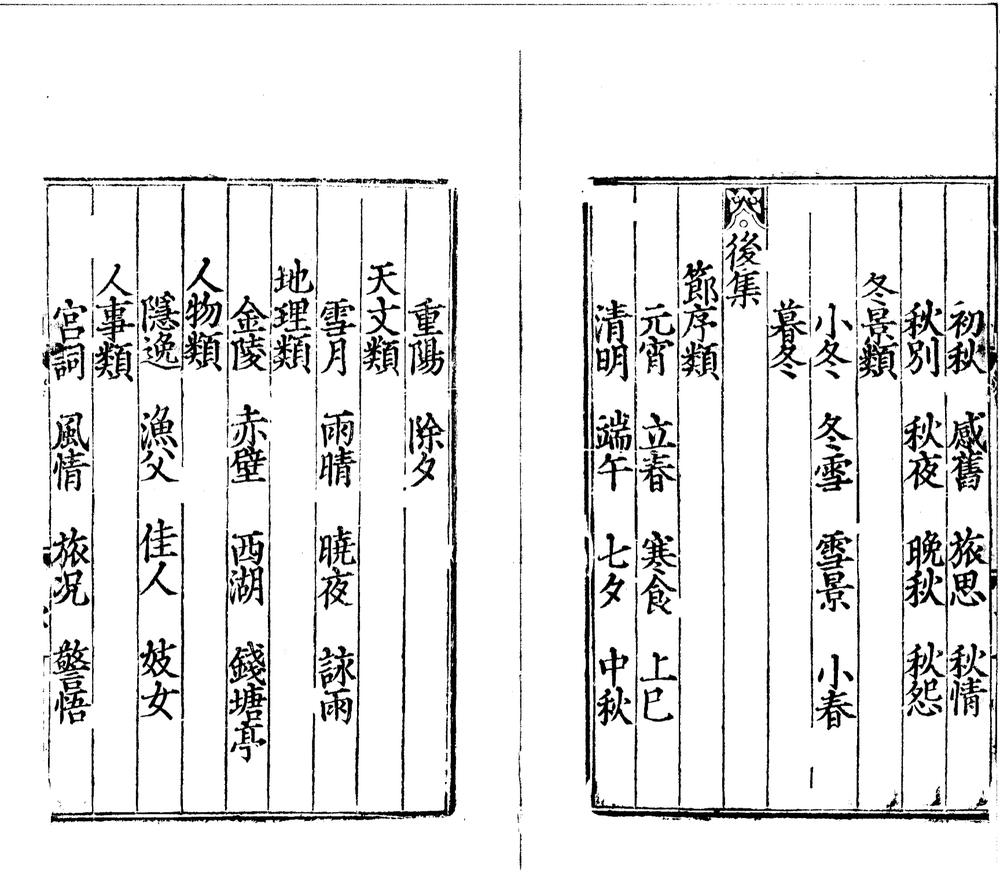 初秋 感舊 旅思 秋情
秋別 秋夜 晚秋 秋怨
冬景類
小冬 冬雪 雪景 小春
暮冬
後集
節序類
元宵 立春 寒食 上巳
清明 端午 七夕 中秋
重陽 除夕
天文類
雪月 雨晴 曉夜 詠雨
地理類
金陵 赤壁 西湖 錢塘亭
人物類
隱逸 漁父 佳人 妓女
人事類
宮詞 風情 旅况 警悟